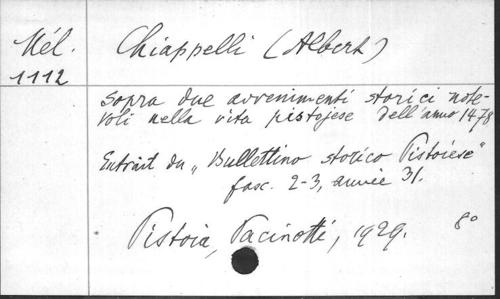 Mél.
1112
Chiappelli (Albert)
sopra due avvenimenti storici note-
voli nella vita pistojese dell'anno 1478
Extrait du „Bullettino storico Pistoiese"
fasc. 2-3, année 31.
Pistoia, Pacinotti, 1929. 8°